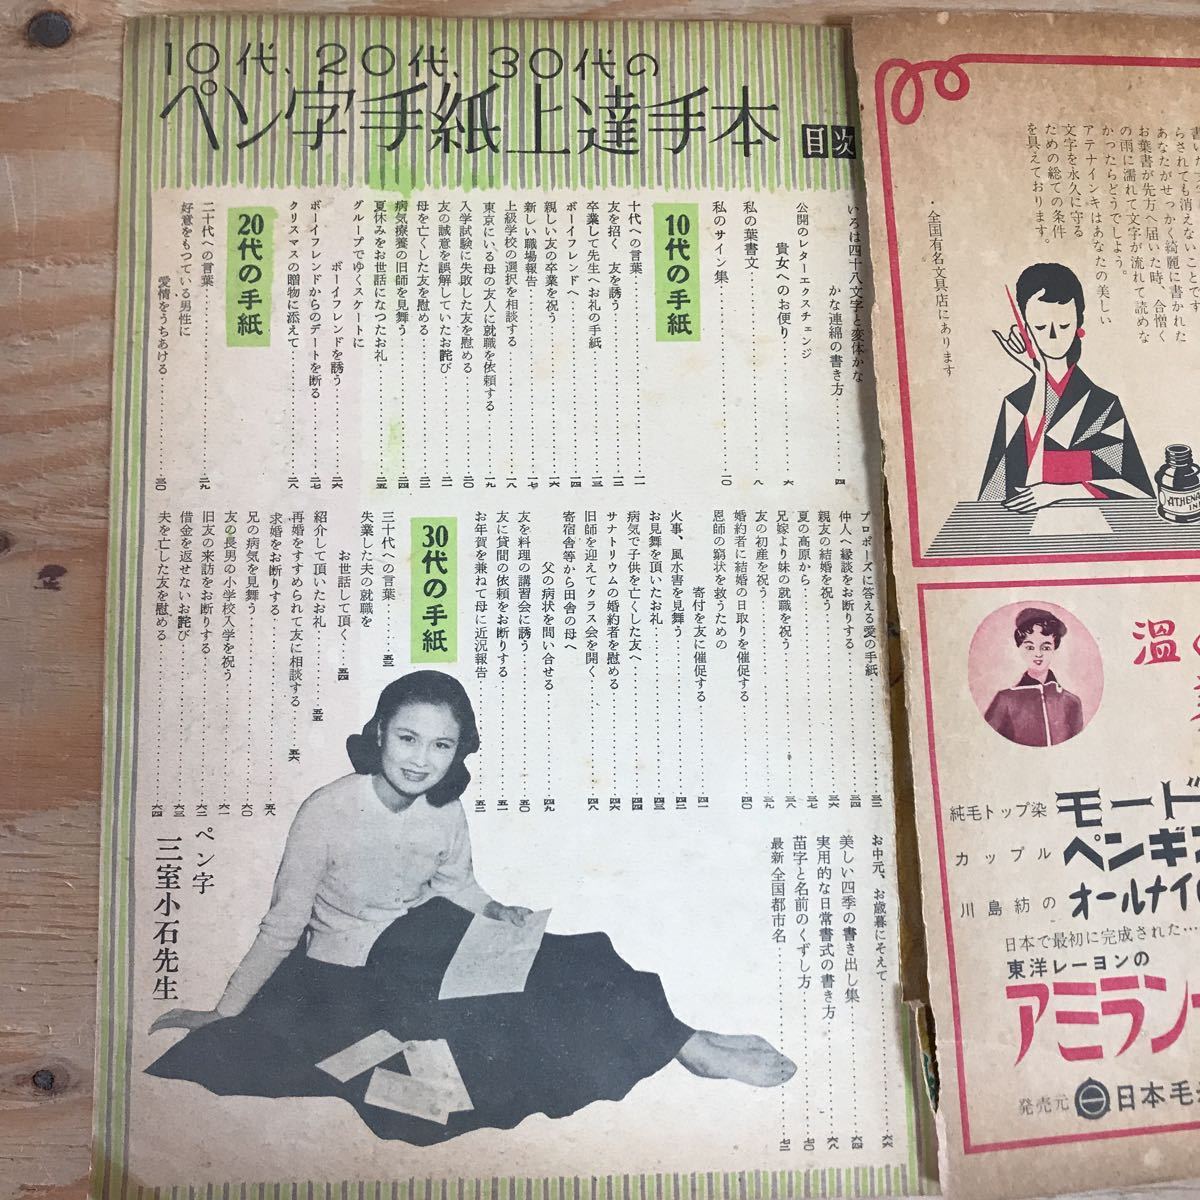 10代、20代、30代の
ペン字手紙上達手本
目次
いろは四十八文字と変体かな
かな連綿の書き方……四
公開のレターエクスチェンジ
貴女へのお便り……六
私の葉書文……八
私のサイン集……一〇
10代の手紙
十代への言葉……一一
友を招く 友を誘う……一二
卒業して先生へお礼の手紙……一三
ボーイフレンドへ……一四
親しい友の卒業を祝う……一六
新しい職場報告……一七
上級学校の選択を相談する……一八
東京にいる母の友人に就職を依頼する……一九
入学試験に失敗した友を慰める……二〇
友の誠意を誤解していたお詫び……二一
母を亡くした友を慰める……二二
病気療養の旧師を見舞う……二四
夏休みをお世話になつたお礼……二五
グループでゆくスケートに
ボーイフレンドを誘う……二六
ボーイフレンドからのデートを断る……二七
クリスマスの贈物に添えて……二八
20代の手紙
二十代への言葉……二九
好意をもつている男性に
愛情をうちあける……三〇
プロポーズに答える愛の手紙……三二
仲人へ縁談をお断りする……三四
親友の結婚を祝う……三六
夏の高原から……三七
兄嫁より妹の就職を祝う……三八
友の初産を祝う……三九
婚約者に結婚の日取りを催促する……四〇
恩師の窮状を救うための
寄付を友に催促する……四一
火事、風水害を見舞う……四二
お見舞を頂いたお礼……四三
病気で子供を亡くした友へ……四四
サナトリウムの婚約者を慰める……四六
旧師を迎えてクラス会を開く……四八
寄宿舎等から田舎の母へ
父の病状を問い合せる……四九
友を料理の講習会に誘う……五〇
友に貸間の依頼をお断りする……五一
お年賀を兼ねて母に近況報告……五二
30代の手紙
三十代への言葉……五三
失業した夫の就職を
お世話して頂く……五四
紹介して頂いたお礼……五五
再婚をすすめられて友に相談する……五六
求婚をお断りする……五八
兄の病気を見舞う……六〇
友の長男の小学校入学を祝う……六一
旧友の来訪をお断りする……六二
借金を返せないお詫び……六三
夫を亡した友を慰める……六四
お中元、お歳暮にそえて……六六
美しい四季の書き出し集……六四
実用的な日常書式の書き方……六八
苗字と名前のくずし方……七〇
最新全国都市名……七二
ペン字
三室小石先生
らされても消えないことです
あなたがせっかく綺麗に書かれた
お葉書が先方へ届いた時、合憎く
の雨に濡れて文字が流れて読めな
かったらどうでしよう。
アテナインキはあなたの美しい
文字を永久に守る
ための総ての条件
を具えております。
・全国有名文具店にあります
ATHENA
INK
温
純毛トップ染 モード
カップル ペンギン
川島紡の オールナイ
日本で最初に完成された…
東洋レーヨンの
アミラン
発売元 日本毛